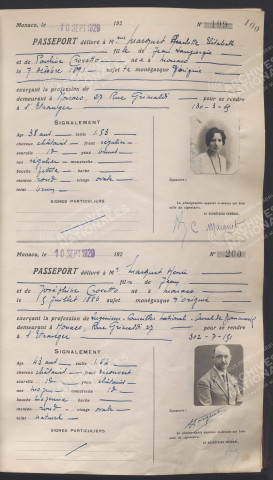 Monaco, 10 SEPT 1929 192 N° 199
PASSEPORT délivré à Mme Marquet Charlotte Elisabeth
fille de Jean
et de Pauline Crovetto né à Monaco
le 7 décembre 1891 sujet te monégasque d'origine
exerçant la profession de
demeurant à Monaco, 27 Rue Grimaldi pour se rendre
à l'Etranger
SIGNALEMENT
Age 38 ans taille 1.53
cheveux châtains front régulier
sourcils id yeux
nez régulier moustache
bouche petite barbe
menton rond visage ovale
teint
SIGNES PARTICULIERS
Signature :
La photographie apposée ci-dessus est bien
celle du signataire.
LE SECRÉTAIRE GÉNÉRAL,
Monaco, 10 SEPT 1929 192 N° 200
PASSEPORT délivré à M. Marquet Henri
fils de Jean
et de Joséphine Crovetto né à Monaco
le 15 juillet 1886 sujet monégasque d'origine
exerçant la profession de Ingénieur Conseiller national
demeurant à Monaco Rue Grimaldi 27 pour se rendre
à l'Etranger
SIGNALEMENT
Age 43 ans taille 1.62
cheveux châtains front découvert
sourcils id yeux châtains
nez moyen moustache id
bouche moyenne barbe
menton rond visage ovale
teint naturel
SIGNES PARTICULIERS
Signature :
La photographie apposée ci-dessus est bien
celle du signataire.
LE SECRÉTAIRE GÉNÉRAL,